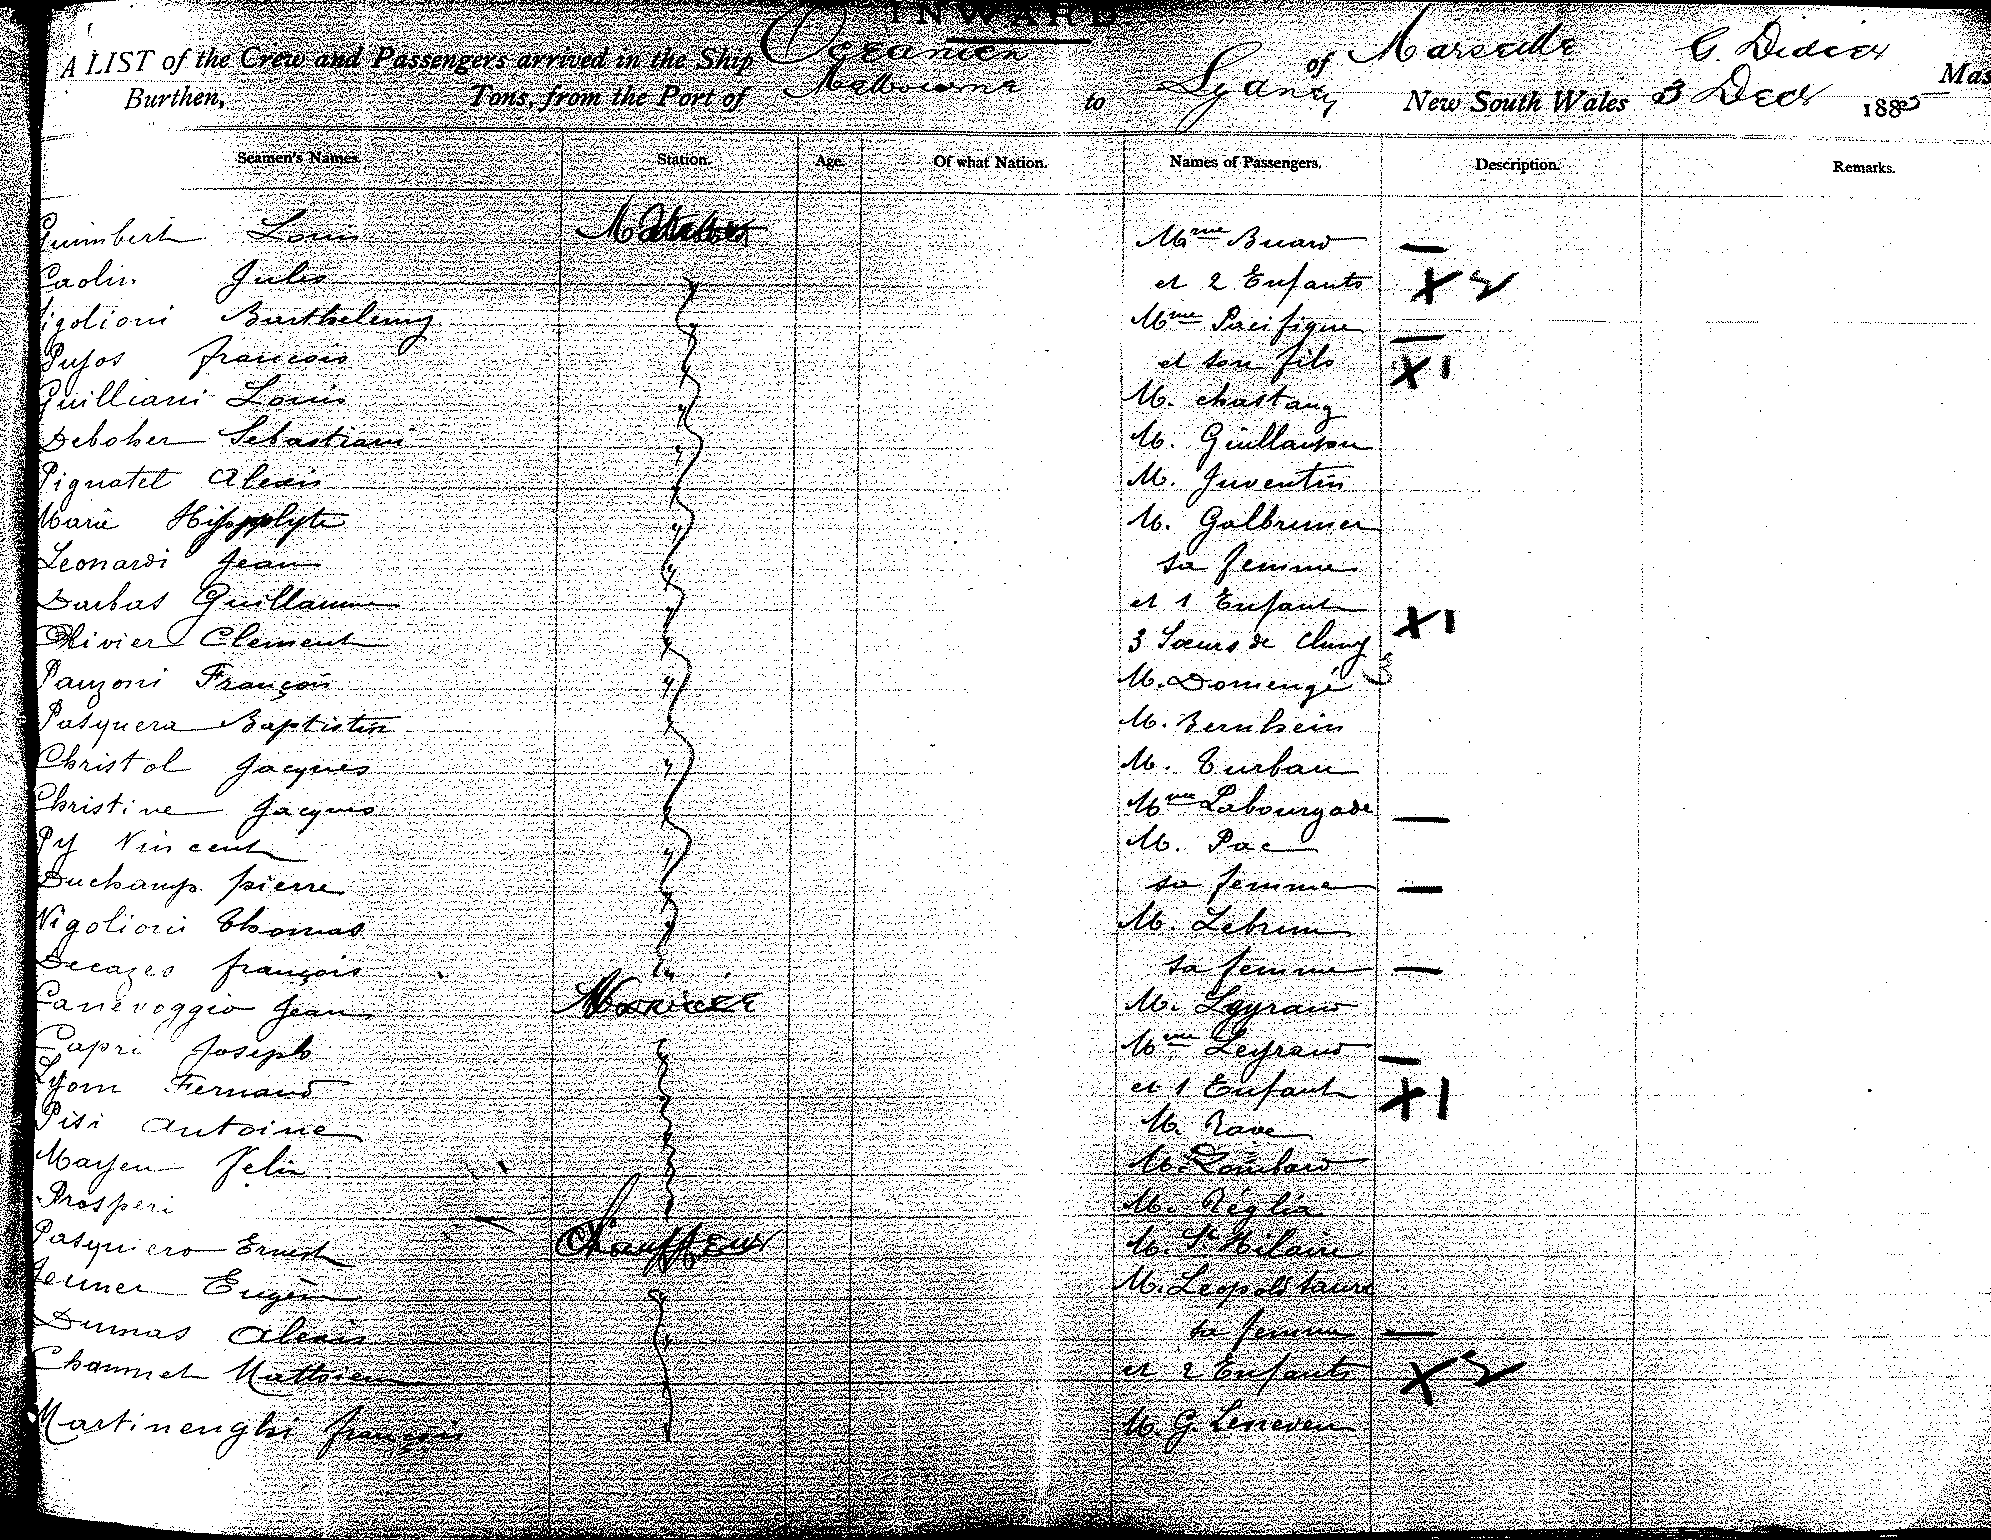 INWARD
A LIST of the Crew and Passengers arrived in the Ship Oceanien of Marseille G. Didier Mas
Burthen, Tons, from the Port of Melbourne to Sydney New South Wales 3 Decr 188
Seamen's Names. Station. Age. Of what Nation. Names of Passengers. Description. Remarks.
Guimbert Louis Matelot Mme Buard —
Caolin Jules et 2 Enfants X 2
Vigolioni Barthelemy Mme Pacifique —
Pujos francois et son fils X 1
Guilliani Louis M. Chastang
Deboher Sebastiani M. Guillaum
Pignatel Alexis M. Juventin
Marie Hippolyte M. Galbrunier
Leonardi Jean sa femme
Barbas Guillaume et 1 Enfant X 1
Olivier Clement 3 Sœurs de Cluny 3
Panzoni François M. Domengé
Pasquera Baptistin M. Bernhein
Christol Jacques M. Turbau
Christine Jacques Mme Labourgade —
Py Vincent M. Pac
Duchamp pierre sa femme —
Vigolioni Thomas M. Lebrun
Decazes françois sa femme —
Canevoggio Jean M. Leyraud
Capri Joseph Mme Leyraud —
Lyon Fernand et 1 Enfant X 1
Pisi Antoine M. Rave
Mayen Felix M. Lombard
Prosperi M. Réglia
Pasquiero Ernest Chauffeur M. St Hilaire
Jenner Eugène M. Leopold
Dumas Alexis sa femme —
Chaumet Mathieu et 2 Enfants X 2
Martinenghi françois M. G. Lesneven